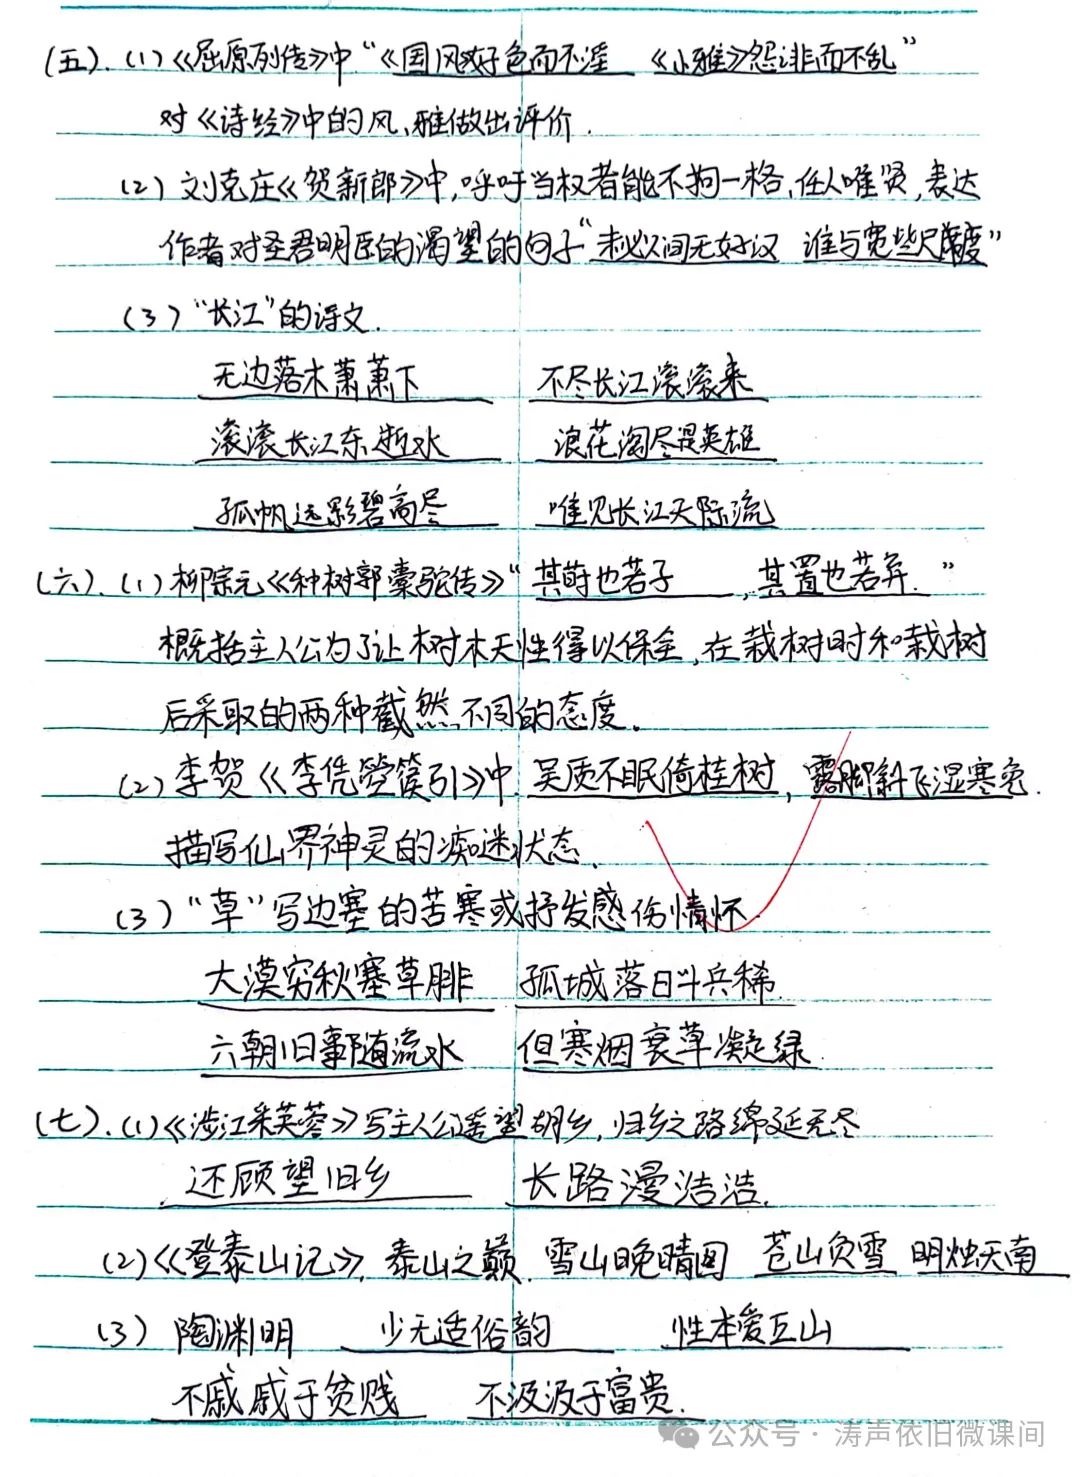 (五).(1)《屈原列传》中“《国风》好色而不淫 《小雅》怨诽而不乱”
对《诗经》中的风、雅做出评价.
(2) 刘克庄《贺新郎》中,呼吁当权者能不拘一格、任人唯贤,表达
作者对圣君明臣的渴望的句子“未必人间无好汉 谁与宽些尺度”
(3)“长江”的诗文.
无边落木萧萧下 不尽长江滚滚来
滚滚长江东逝水 浪花淘尽是英雄
孤帆远影碧高尽 唯见长江天际流
(六).(1)柳宗元《种树郭橐驼传》“其莳也若子 ,其置也若弃.”
概括主人公为了让树木天性得以保全,在栽树时和栽树
后采取的两种截然不同的态度.
(2)李贺《李凭箜篌引》中.吴质不眠倚桂树,露脚斜飞湿寒兔.
描写仙界神灵的痴迷状态.
(3)“草”写边塞的苦寒或抒发感伤情怀.
大漠穷秋塞草腓 孤城落日斗兵稀.
六朝旧事随流水 但寒烟衰草凝绿.
(七).(1)《涉江采芙蓉》写主人公遥望胡乡,归乡之路绵延无尽
还顾望旧乡 长路漫浩浩.
(2)《登泰山记》,泰山之巅.雪山晚晴图 苍山负雪 明烛天南
(3) 陶渊明 少无适俗韵 性本爱丘山
不戚戚于贫贱 不汲汲于富贵.
公众号·涛声依旧微课间